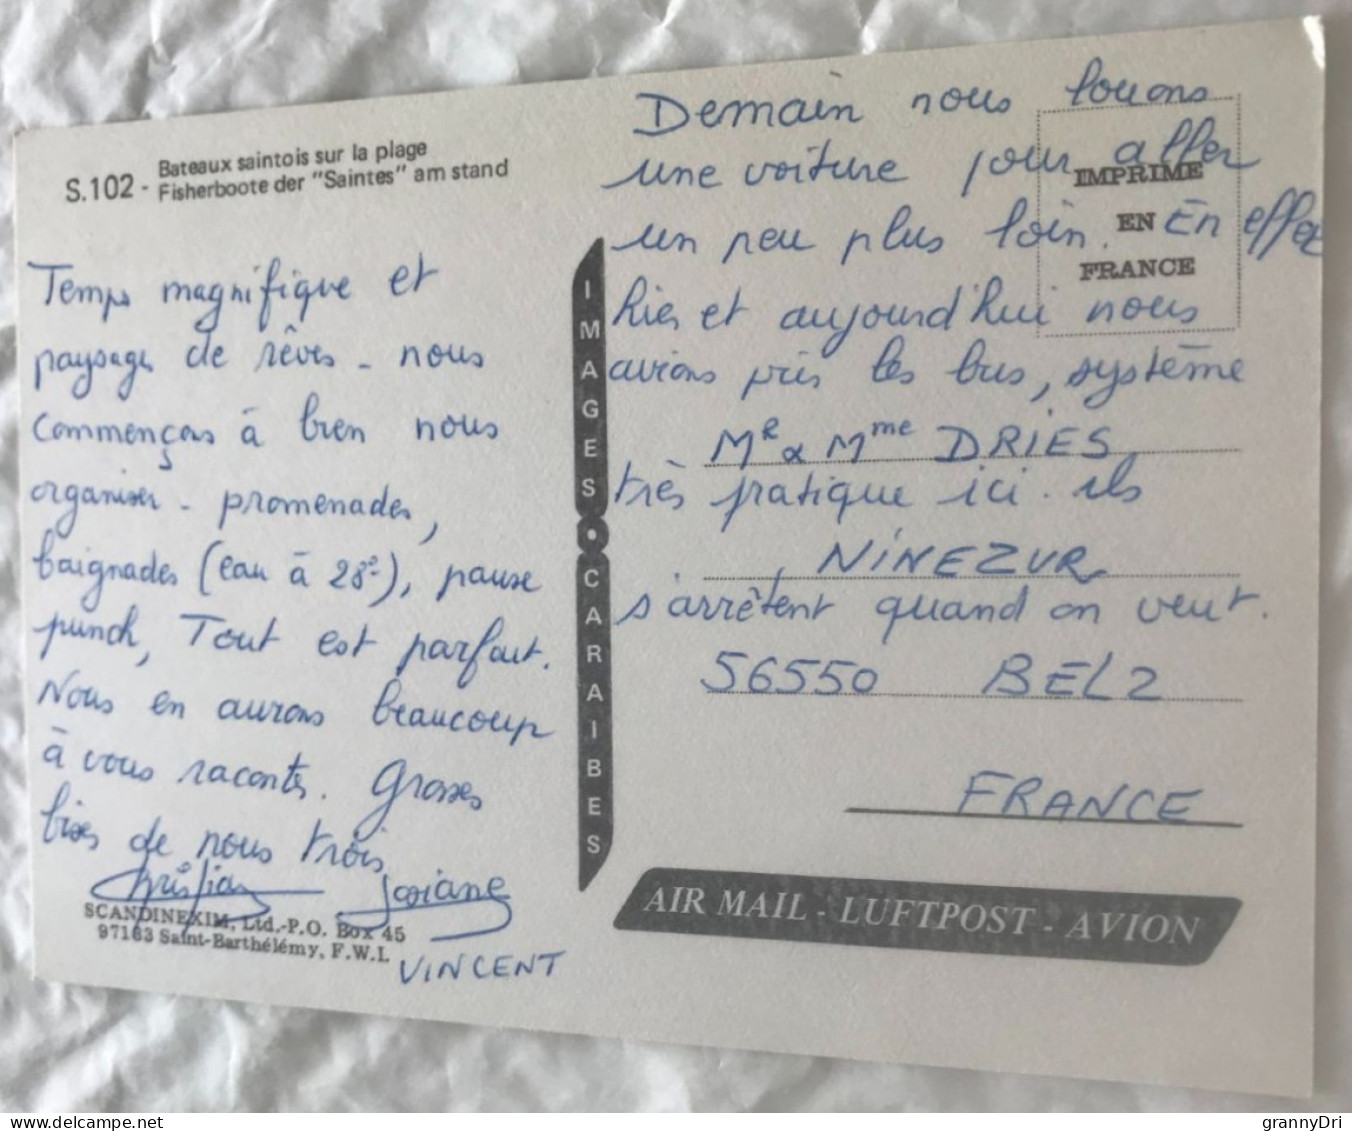 S.102 - Bateaux saintois sur la plage
Fisherboote der "Saintes" am stand
Temps magnifique et
paysages de rêves - nous
commençons à bien nous
organiser - promenades,
baignades (eau à 28°), pause
punch, Tout est parfait.
Nous en aurons beaucoup
à vous raconter. Grosses
bises de nous trois
Christian Josiane
VINCENT
SCANDINEXIM, Ltd.-P.O. Box 45
97183 Saint-Barthélémy, F.W.I.
IMAGES CARAIBES
Demain nous louons
une voiture pour aller
un peu plus loin. En effet
hier et aujourd'hui nous
avions pris les bus, système
très pratique ici. ils
s'arrêtent quand on veut.
IMPRIME
EN
FRANCE
Mr & Mme DRIES
NINEZUR
56550 BELZ
FRANCE
AIR MAIL - LUFTPOST - AVION
grannyDri
delcampe.net